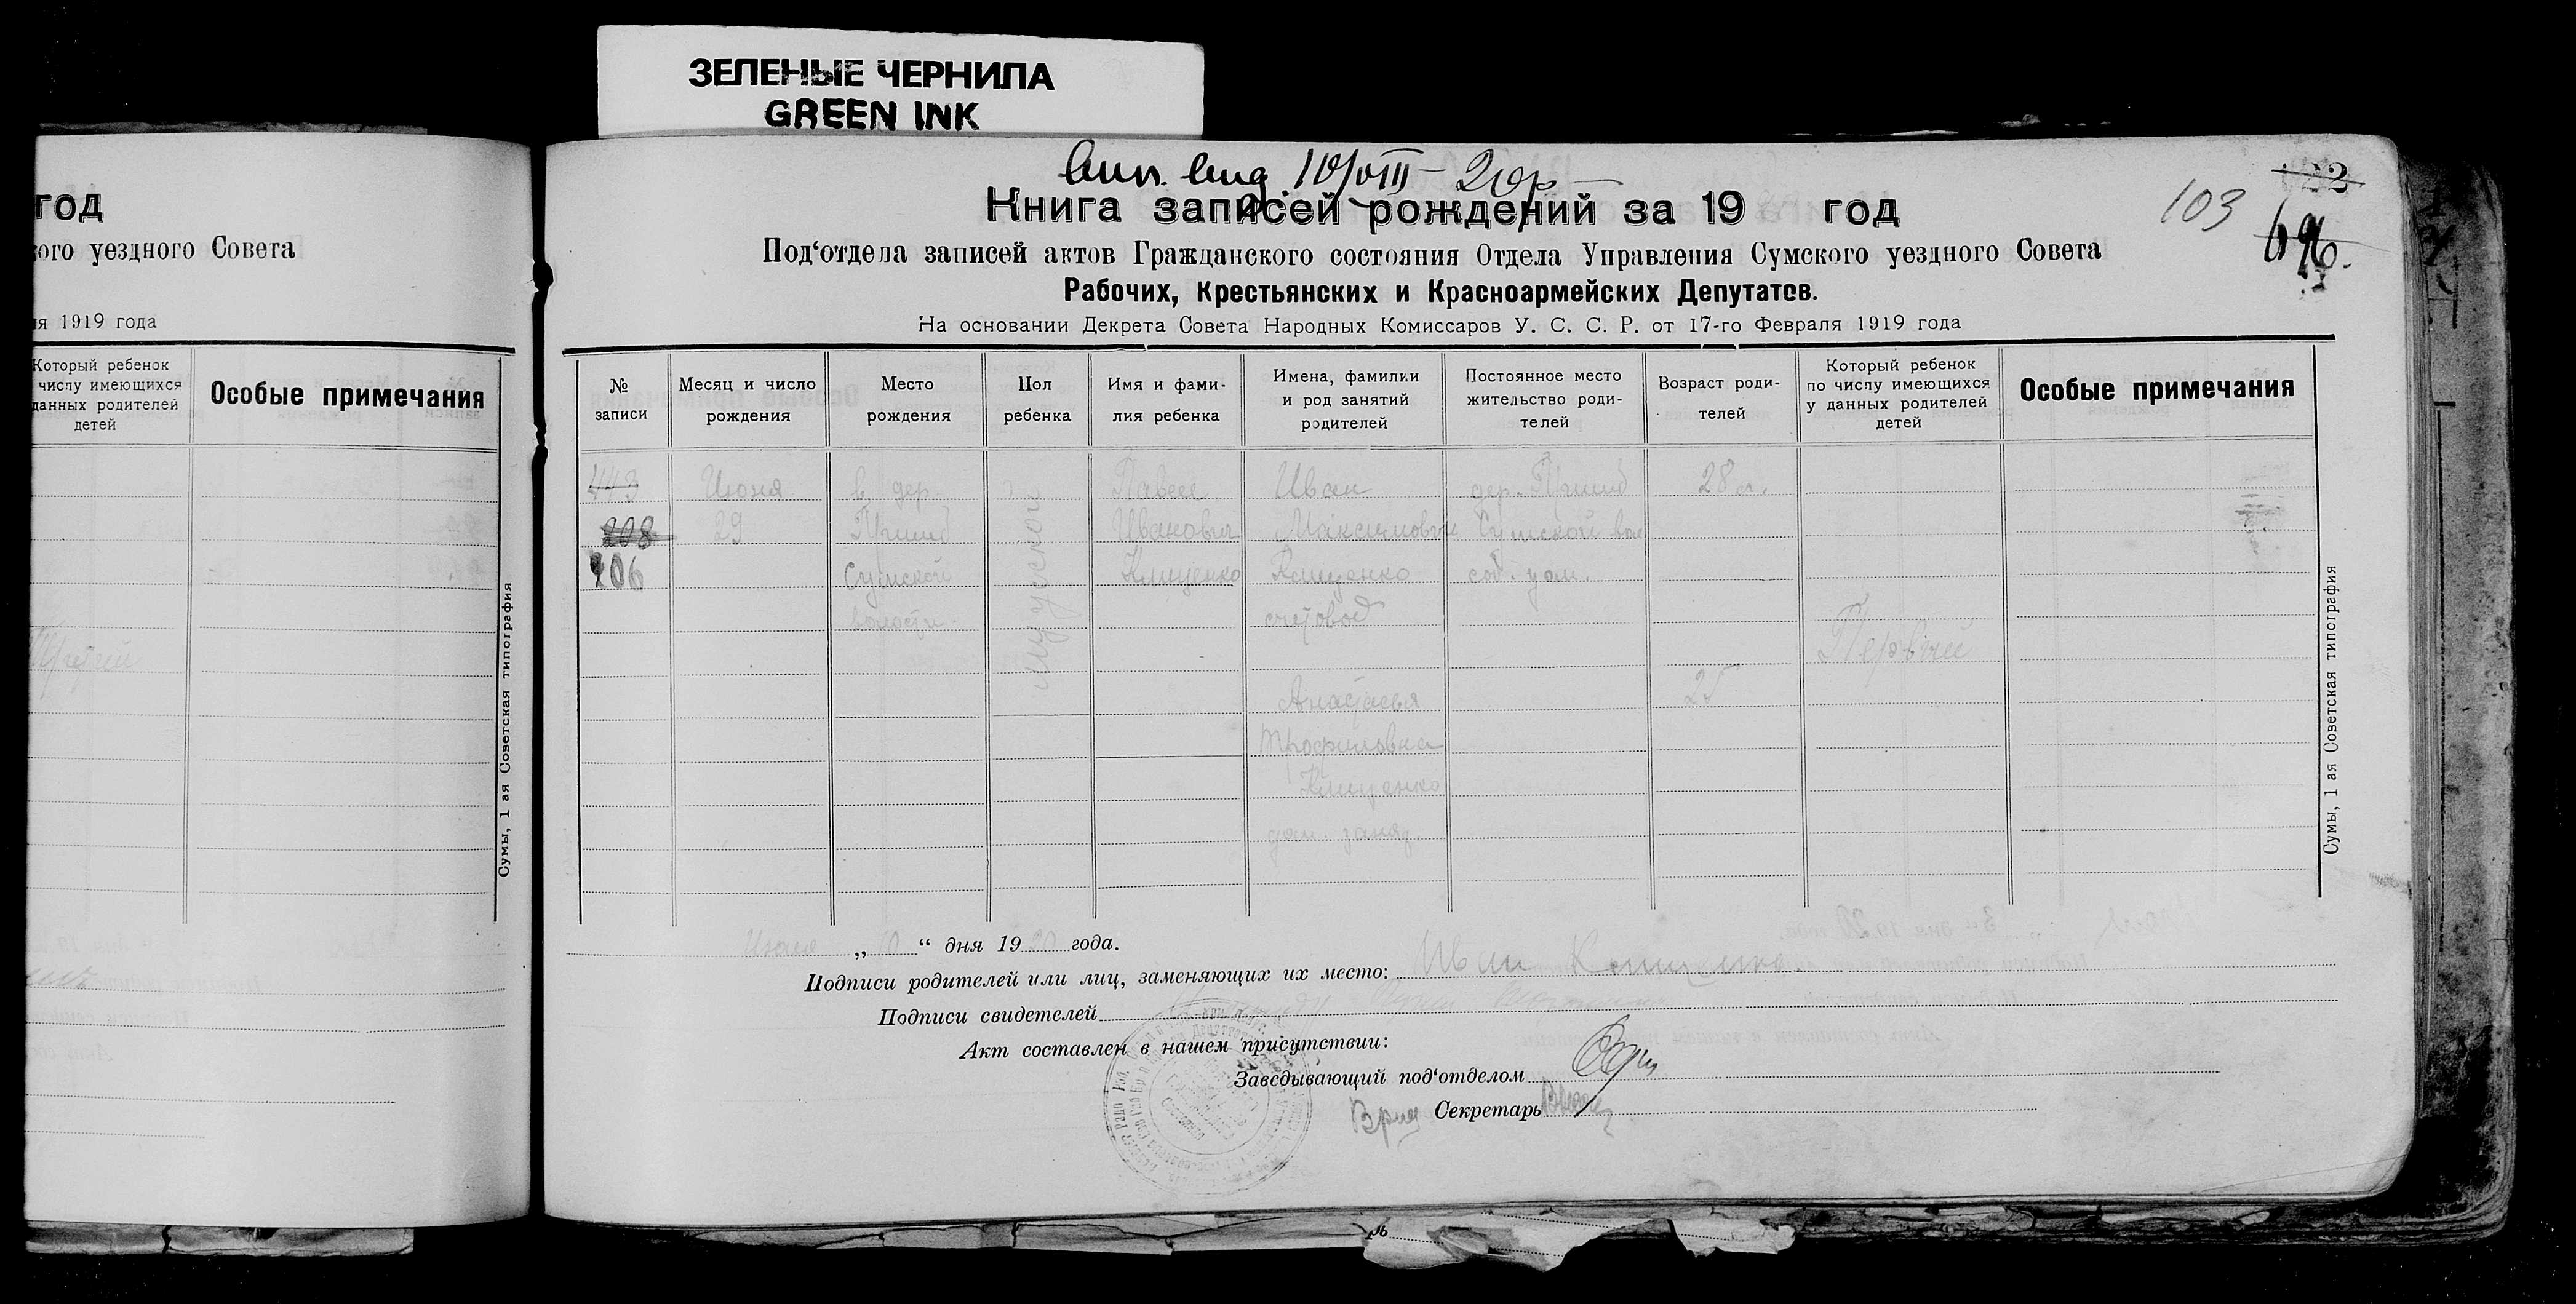 ЗЕЛЕНЫЕ ЧЕРНИЛА
GREEN INK
год
кого уездного Совета
ля 1919 года
Который ребенок
числу имеющихся
данных родителей
детей
Особые примечания
Сумы, 1 ая Советская типография
10/VIII - 20 р
22
103
Книга записей рождений за 19 год
Под‘отдела записей актов Гражданского состояния Отдела Управления Сумского уездного Совета
Рабочих, Крестьянских и Красноармейских Депутатов.
На основании Декрета Совета Народных Комиссаров У. С. С. Р. от 17-го Февраля 1919 года
№ записи
Месяц и число рождения
Место рождения
Пол ребенка
Имя и фами-
лия ребенка
Имена, фамилии
и род занятий
родителей
Постоянное место
жительство роди-
телей
Возраст роди-
телей
Который ребенок
по числу имеющихся
у данных родителей
детей
Особые примечания
443
208
206
Июня
29
в дер.
Сумской
волости
мужеского
Павел
Иванович
Клищенко
Иван
Максимович
Клищенко
счетовод
Анастасья
Трофимовна
Клищенко
дом. заняд.
дер.
Сумской вол
28 л.
25
Первый
Сумы, 1 ая Советская типография
Июля „ 10 “ дня 1920 года.
Подписи родителей или лиц, заменяющих их место: Иван Клищенко
Подписи свидетелей
Акт составлен в нашем присутствии:
Заведывающий под‘отделом
Врид Секретарь